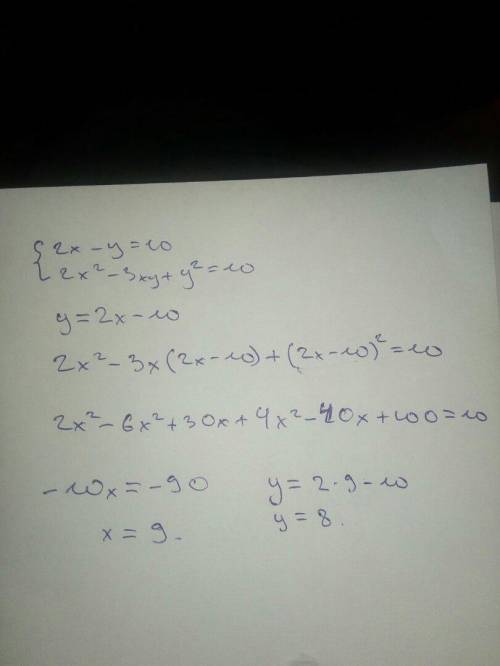 { 2x - y = 10
2x² - 3xy + y² = 10
y = 2x - 10
2x² - 3x(2x - 10) + (2x - 10)² = 10
2x² - 6x² + 30x + 4x² - 40x + 100 = 10
-10x = -90    y = 2·9 - 10
x = 9.    y = 8.